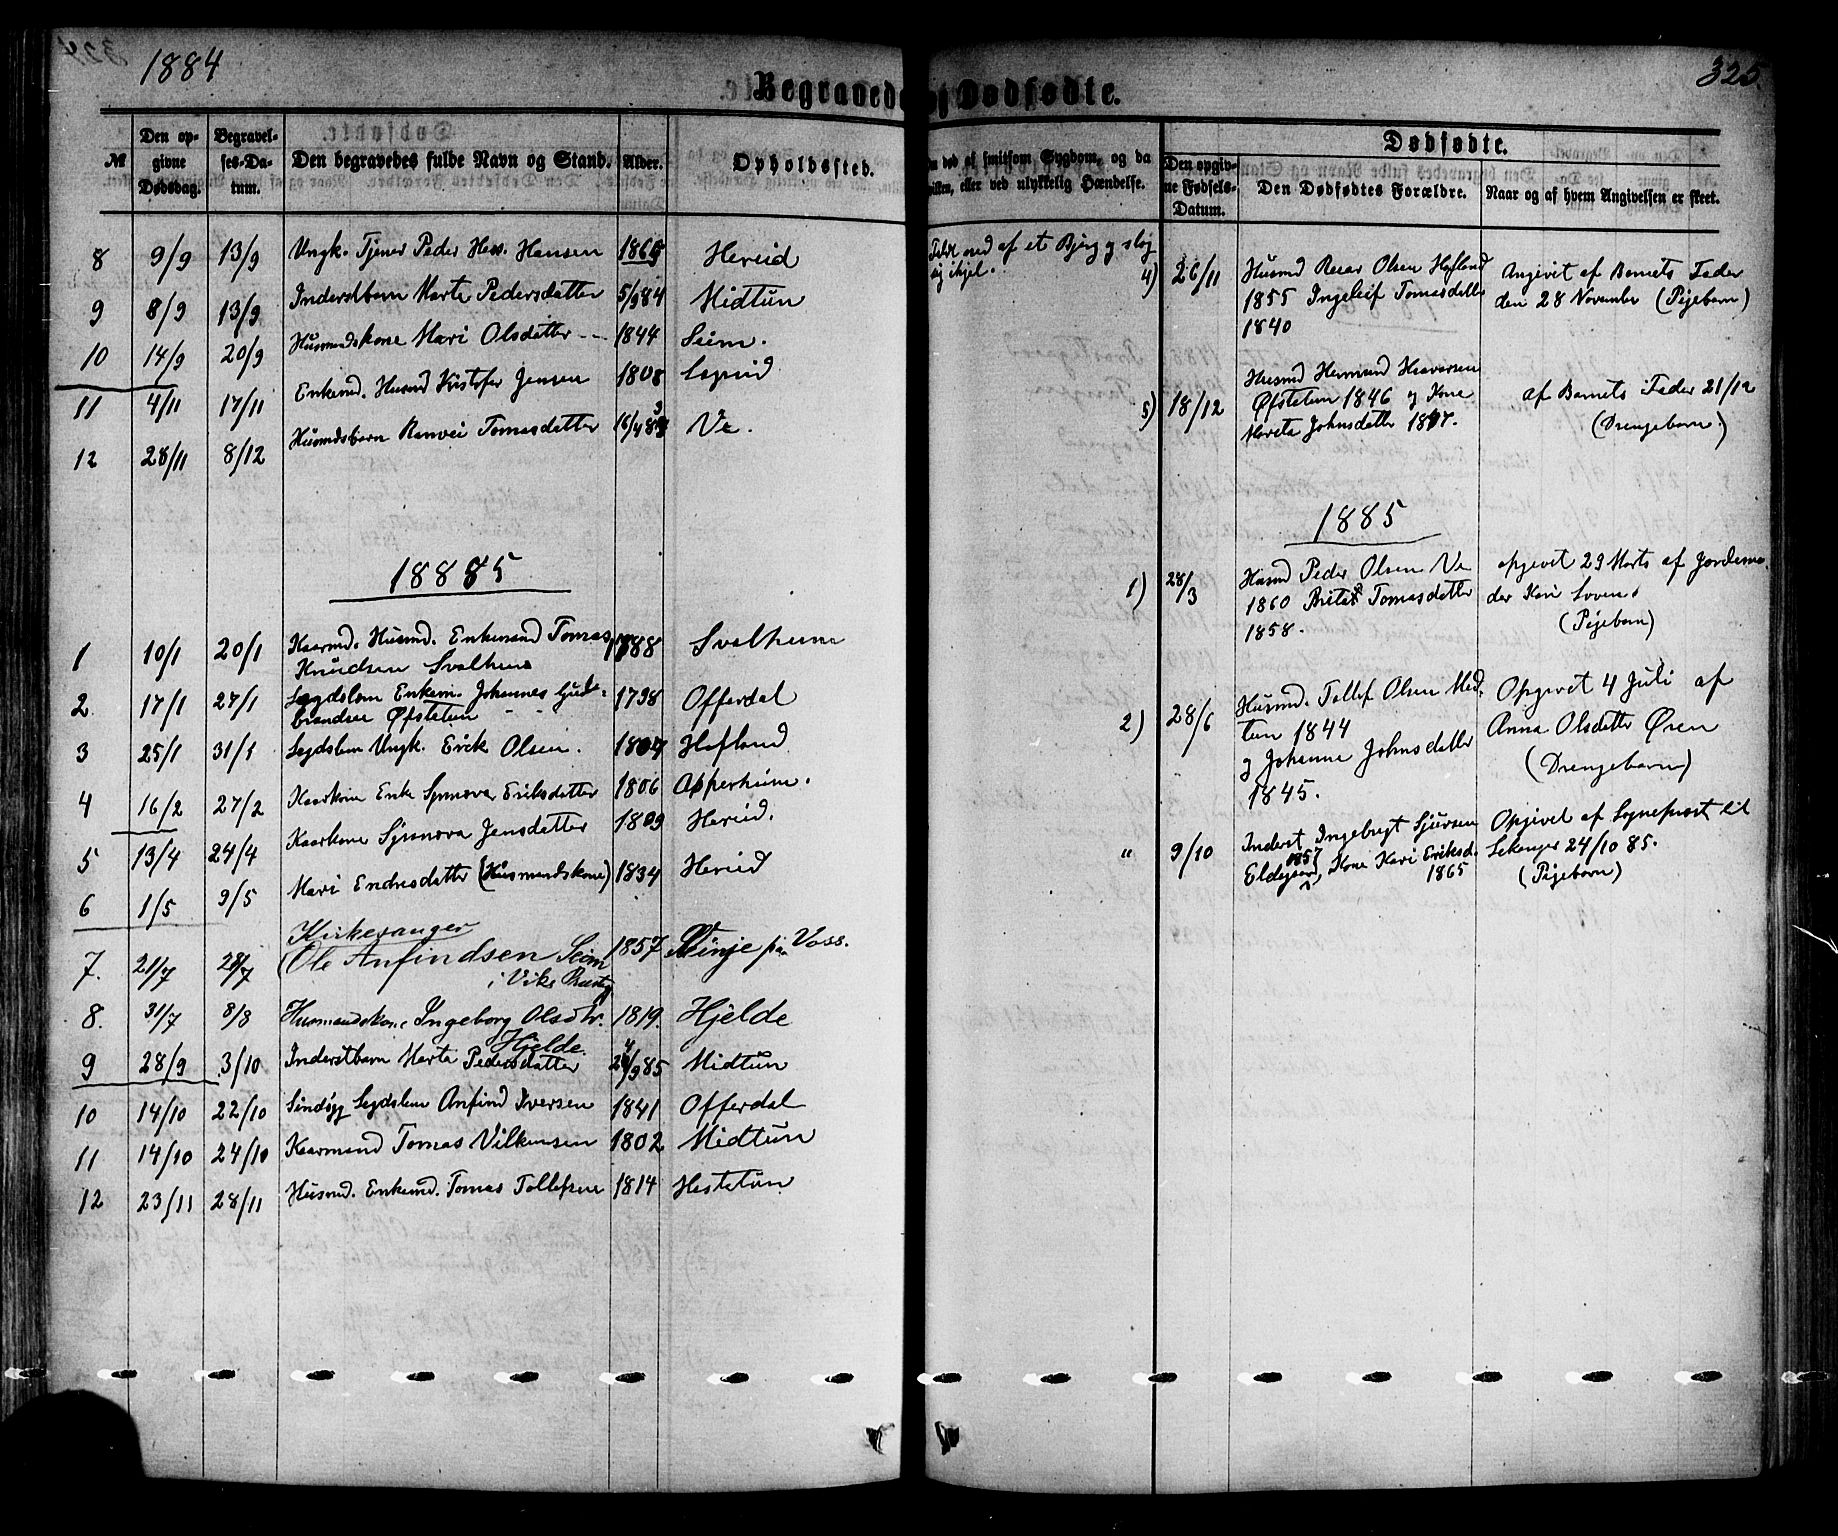 1884
325.
Begravede og Dødfødte.
№
Den opgivne Dødsdag.
Begravelses-Datum.
Den begravedes fulde Navn og Stand.
Alder.
Opholdssted.
ved af smitsom Sygdom, og da
eller ved ulykkelig Hændelse.
Dødfødte.
Den opgivne Fødsels-Datum.
Den Dødfødtes Forældre.
Naar og af hvem Angivelsen er skeet.
8 9/9 13/9 Ungk. Tjener Peder Hansen 1865 Hereid
ned af et Bjerg og slog
sig ihjel.
9 8/9 13/9 Inderstbarn Marte Pedersdatter 5/9 84 Midtun
10 14/9 20/9 Husmandskone Mari Olsdatter 1844 Seim.
11 4/11 17/11 Enkemd. Husmd Kristofer Jensen 1808
12 28/11 8/12 Husmdsbarn Ranvei Tomasdatter 16/4 83 Ve.
4) 26/11 Husmd Olsen Hofland
1855 Ingeleif Tomasdatter
1840
Angivet af Barnets Fader
den 28 November (Pigebarn)
5) 18/12 Husmd Hermund
Øfstetun 1846 og Kone
Marita Johnsdatter
af Barnets Fader 21/12
(Drengebarn.)
1885
1 10/1 20/1 Kaarmd. Husmd. Enkemand Tomas
Knudsen Svalheim 1788 Svalheim
2. 17/1 27/1 Lægdslem Enkem. Johannes Gud-
brandsen Øfstetun 1798 Offerdal
3 25/1 31/1 Legdslem Ungk. Erik Olsen. Hofland
4 16/2 27/2 Kaarkone Enke Synnøva Eriksdatter 1806 Opperheim.
5 13/4 24/4 Kaarkone Synnøva Jensdatter 1809 Hereid.
6 1/5 9/5 Mari Endresdatter (Husmandskone) 1834 Hereid
7. 21/7 28/7 Kirkesanger
Ole Anfindsen Seim
i Viks Præstg 1857 Vinje paa Voss.
8. 31/7 8/8 Husmandskone Ingeborg Olsdtr.
Hjelde. 1819. Hjelde
9 28/9 3/10 Inderstbarn Marta Pedersdatter 24/9 85 Midtun
10 14/10 22/10 Sindsyg Legdslem Anfind Iversen 1841 Offerdal
11 14/10 24/10 Kaarmand Tomas Vilkensen 1802 Midtun
12 23/11 28/11 Husmd. Enkemd. Tomas Tollefsen 1814 Hestetun.
1885
1) 28/3 Husmd Peder Olsen Ve
1860 Brita Tomasdatter
1858.
opgivet 29 Marts af Jordemo-
der Kari
(Pigebarn)
2) 28/6 Husmd. Tollef Olsen Med-
tun 1844
og Johanne Johnsdatter
1845.
Opgivet 4 Juli af
Anna Olsdatter Øren
(Drengebarn)
" 9/10 Inderst Ingebrigt Sjursen
1857, Kone Kari Eriksd.
1865
Opgivet af Sogneprest til
Lekanger 24/10 85.
(Pigebarn)